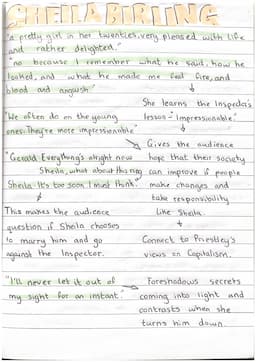 SHEILA BIRLING
"a pretty girl in her twenties, very pleased with life
and rather delighted."
"no because I remember what he said, how he
looked, and what he made me feel. Fire, and
blood and anguish"
She learns the Inspector's
lesson - "Impressionable"
"We often do on the young
ones. They're more impressionable"
Gives the audience
hope that their society
can improve if people
make changes and
take responsibility
like Sheila.
"Gerald: Everything's alright now
Sheila, what about this ring
Sheila: It's too soon. I must think."
This makes the audience
question if Sheila chooses
to marry him and go
against the Inspector.
Connect to Priestley's
views on Capitalism.
"I'll never let it out of
my sight for an instant."
Foreshadows secrets
coming into light and
contrasts when she
turns him down.